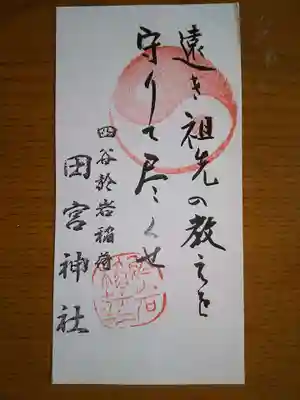 遠き祖先の教えを
守りて尽くせ
四谷於岩稲荷
田宮神社